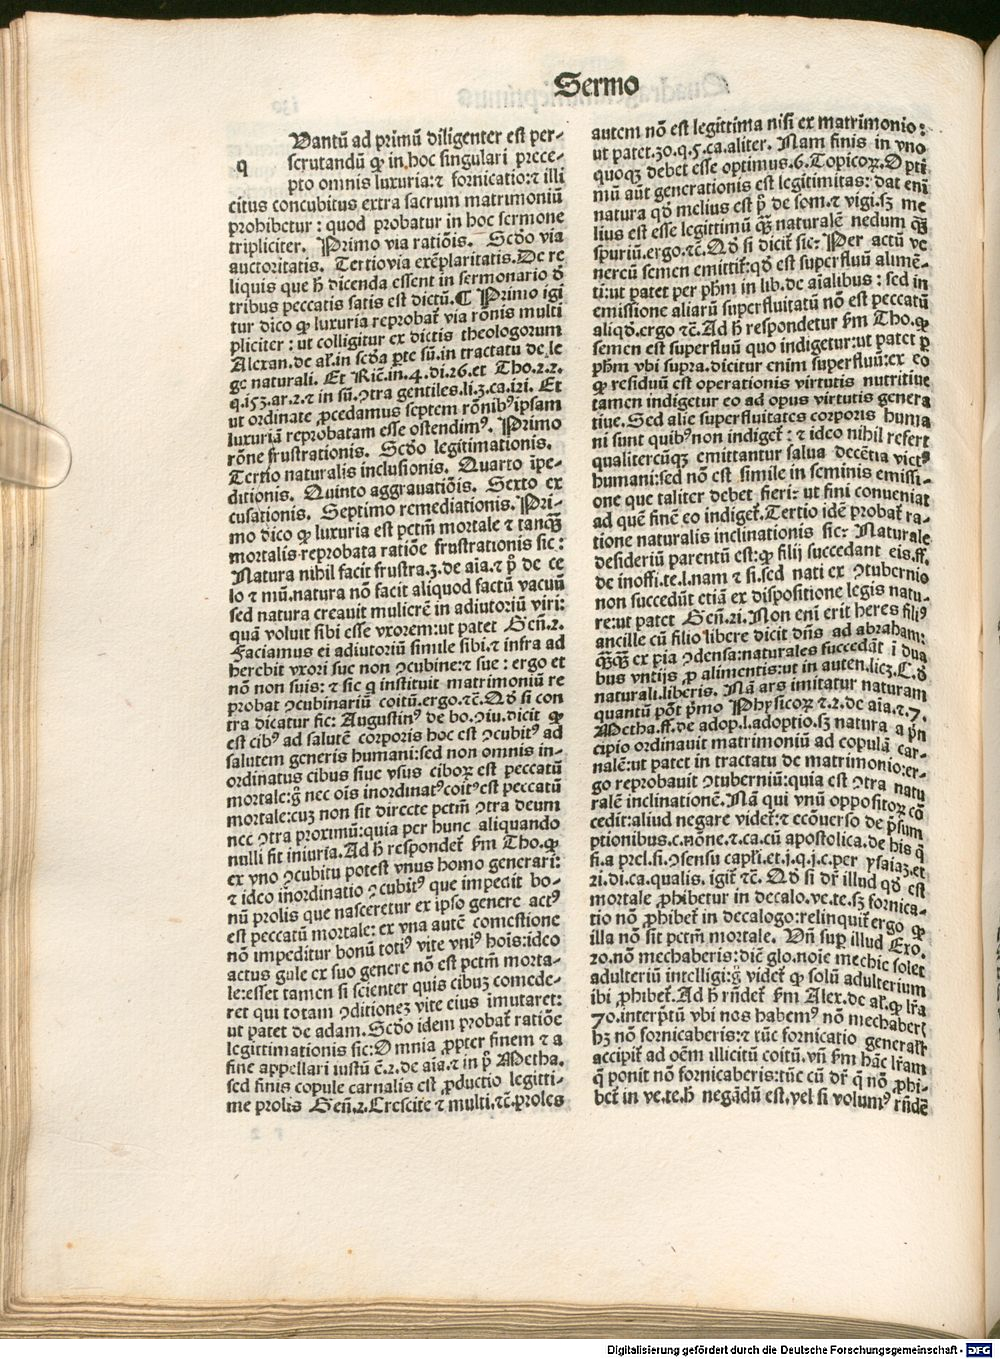 Sermo
q Uantū ad primū diligenter est per-
scrutandū ꝙ in hoc singulari prece-
pto omnis luxuria: ⁊ fornicatio: ⁊ illi
citus concubitus extra sacrum matrimoniū
prohibetur: quod probatur in hoc sermone
tripliciter. Primo via ratiōis. Scd̄o via
auctoritatis. Tertio via exēplaritatis. De re
liquis que h̄ dicenda essent in sermonario d̄
tribus peccatis satis est dictū. ¶ Primo igi
tur dico ꝙ luxuria reprobat᷑ via rōnis multi
pliciter: ut colligitur ex dictis theologorum
Alexan. de al̓. in scd̄a p̱te sū. in tractatu de le
ge naturali. Et Ric̄. in. 4. di. 26. et Tho. 2. 2.
q. 153. ar. 2. ⁊ in sū. ꝯtra gentiles. li. 3. ca. 121. Et
ut ordinate ꝓcedamus septem rōnibꝰ ipsam
luxuriā reprobatam esse ostendimꝰ. Primo
rōne frustrationis. Scd̄o legitimationis.
Tertio naturalis inclusionis. Quarto īpe-
ditionis. Quinto aggravatiōis. Sexto ex
cusationis. Septimo remediationis. Pri-
mo dico ꝙ luxuria est pctm̄ mortale ⁊ tanqȝ̄
mortalis reprobata ratiōe frustrationis sic:
Natura nihil facit frustra. 3. de aīa. ⁊ p̄ de ce
lo ⁊ mū. natura nō facit aliquod factū vacuū
sed natura creauit mulierē in adiutoriū viri:
quā voluit sibi esse vxorem: ut patet Gen̄. 2.
Faciamus ei adiutoriū simile sibi. ⁊ infra ad
herebit vxori sue non ꝯcubine: ⁊ sue: ergo et
nō non suis: ⁊ sic q̇ instituit matrimoniū re
probat ꝯcubinariū coitū. ergo. ⁊c̄. Qd̄ si con
tra dicatur sic: Augustinꝰ de bo. ꝯiu. dicit ꝙ
est cibꝰ ad salutē corporis hoc est ꝯcubitꝰ ad
salutem generis humani: sed non omnis in-
ordinatus cibus siue vsus ciboꝝ est peccatū
mortale: g̊ nec oīs inordinatꝰ coitꝰ est peccatū
mortale: cuȝ non sit directe pctm̄ ꝯtra deum
nec ꝯtra proximū: quia per hunc aliquando
nulli fit iniuria. Ad h̄ respondet᷑ fm̄ Tho. ꝙ
ex vno ꝯcubitu potest vnus homo generari:
⁊ ideo īnordinatio ꝯcubitꝰ que impedit bo-
nū prolis que nasceretur ex ipso genere actꝰ
est peccatū mortale: ex vna autē comestione
nō impeditur bonū totiꝰ vite vniꝰ hoīs: ideo
actus gule ex suo genere nō est pctm̄ morta-
le: esset tamen si scienter quis cibuȝ comede-
ret qui totam ꝯditioneȝ vite eius imutaret:
ut patet de adam. Scd̄o idem probat᷑ ratiōe
legittimationis sic: Omnia ꝓpter finem ⁊ a
fine appellari iustū ē. 2. de aīa. ⁊ in p̄ Metha.
sed finis copule carnalis est ꝓductio legitti-
me prolis Gen̄. 2. Crescite ⁊ multi. ⁊c̄. proles
autem nō est legittima nisi ex matrimonio:
ut patet. 30. q. 5. ca. aliter. Nam finis in vno
quoqȝ debet esse optimus. 6. Topicoꝝ. Opti
mū aūt generationis est legitimitas: dat enī
natura qd̄ melius est p̄ de som. ⁊ vigi. sȝ me
lius est esse legittimū qȝ̄ naturalē nedum qȝ̄
spuriū. ergo. ⁊c̄. Qd̄ si dicit᷑ sic: Per actū ve
nereū semen emittit᷑: qd̄ est superfluū alimē-
ti: ut patet per phm̄ in lib. de aīalibus: sed in
emissione aliarū superfluitatū nō est peccatū
aliqd̄. ergo ⁊c̄. Ad h̄ respondetur fm̄ Tho. ꝙ
semen est superfluū quo indigetur: ut patet ꝑ
phm̄ vbi supra. dicitur enim superfluū: ex eo
ꝙ residuū est operationis virtutis nutritiue
tamen indigetur eo ad opus virtutis genera
tiue. Sed alie superfluitates corporis huma
ni sunt quibꝰ non indiget᷑: ⁊ ideo nihil refert
qualitercūqȝ emittantur salua decētia victꝰ
humani: sed nō est simile in seminis emissi-
one que taliter debet fieri: ut fini conueniat
ad quē finē eo indiget᷑. Tertio idē probat᷑ ra-
tione naturalis inclinationis sic: Naturale
desideriū parentū est: ꝙ filij succedant eis. ff.
de inoffi. te. l. nam ⁊ si. sed nati ex ꝯtubernio
non succedūt etiā ex dispositione legis natu-
re: ut patet Gen̄. 21. Non enī erit heres filiꝰ
ancille cū filio libere dicit dn̄s ad abraham:
qȝ̄qȝ̄ ex p̄ia ꝯdensa: naturales succedāt ī dua
bus vntijs ꝓ alimentis: ut in auten. licȝ. C. d̄
naturali. liberis. Nā ars imitatur naturam
quantū pōt p̄mo Physicoꝝ ⁊. 2. de aīa. ⁊. 7.
Metha. ff. de adop. l. adoptio. sȝ natura a p̄n
cipio ordinauit matrimoniū ad copulā car-
nalē: ut patet in tractatu de matrimonio: er-
go reprobauit ꝯtuberniū: quia est ꝯtra natu
ralē inclinationē. Nā qui vnū oppositoꝝ cō
cedit: aliud negare videt᷑: ⁊ ecōuerso de p̄sum
ptionibus. c. nōne. ⁊. ca. cū apostolica. de his q̄
fi. a prel. si. ꝯsensu capl̓i. et. j. q. j. c. per ysaiaȝ. et
21. di. ca. qualis. igit᷑ ⁊c̄. Qd̄ si dr̄ illud qd̄ est
mortale ꝓhibetur in decalo. ve. te. sȝ fornica-
tio nō ꝓhibet᷑ in decalogo: relinquit᷑ ergo ꝙ
illa nō sit pctm̄ mortale. Vn̄ sup̱ illud Exo.
20. nō mechaberis: dic̄ glo. noīe mechie solet
adulteriū intelligi: g̊ videt᷑ ꝙ solū adulterium
ibi ꝓhibet᷑. Ad h̄ rn̄det᷑ fm̄ Alex. de al̓. ꝙ lr̄a
70. interp̄tū vbi nos habemꝰ nō mechaberis
hȝ nō fornicaberis: ⁊ tūc fornicatio generalr̓
accipit᷑ ad oēm illicitū coitū. vn̄ fm̄ hāc lr̄am
q̄ ponit nō fornicaberis: tūc cū dr̄ q̄ nō ꝓhi-
bet᷑ in ve. te. h̄ negādū est. vel si volumꝰ rn̄dē
Digitalisierung gefördert durch die Deutsche Forschungsgemeinschaft - DFG